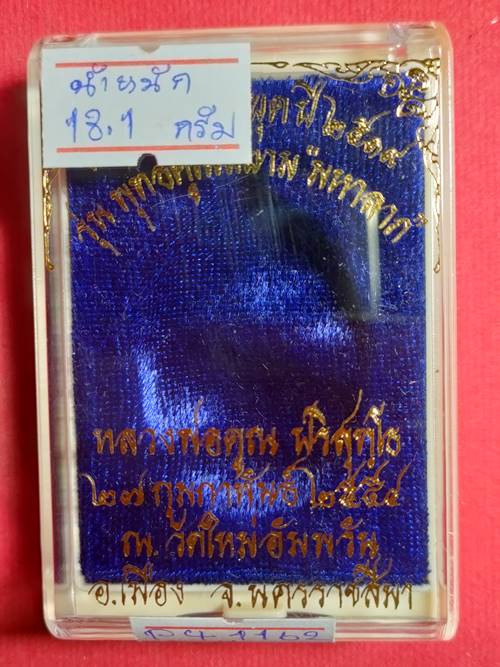 น้ำหนัก
18.1 กรัม
ปี ๒๕๑๙
รุ่น มหาลาภ
หลวงพ่อคูณ ปริสุทฺโธ
๒๗ กุมภาพันธ์ ๒๕๕๔
ณ. วัดใหม่อัมพวัน
อ.เมือง จ.นครราชสีมา